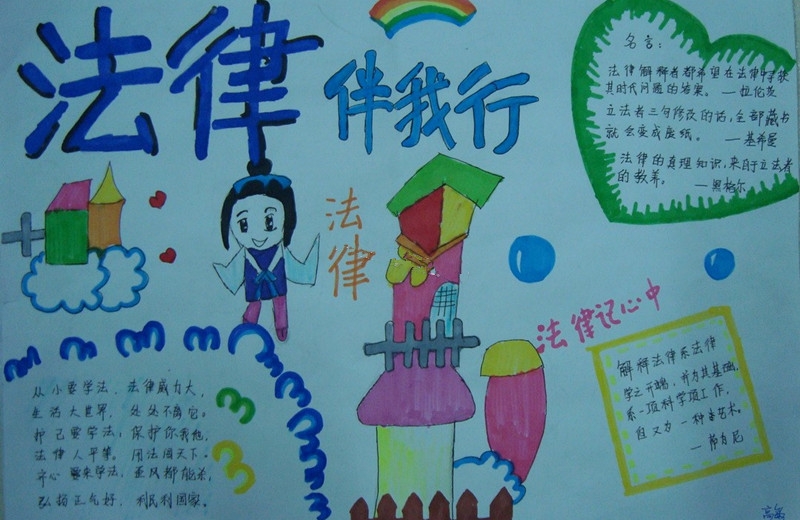 法律
伴我行
名言：
法律解释者都希望在法律中寻获
其时代问题的答案。 —拉伦茨
立法者三句修改的话，全部藏书
就会变成废纸。 —基希曼
法律的真理知识，来自于立法者
的教养。 —黑格尔
法律
法律记心中
解释法律系法律
学之开端，并为其基础，
系一项科学项工作，
但又为一种艺术。
—萨维尼
从小要学法，法律威力大，
生活大世界，处处不离它。
都已要学法，保护你我他，
法律人平等。用法闯天下。
齐心
来学法，
都能杀，
弘扬正气好，利民利国家。